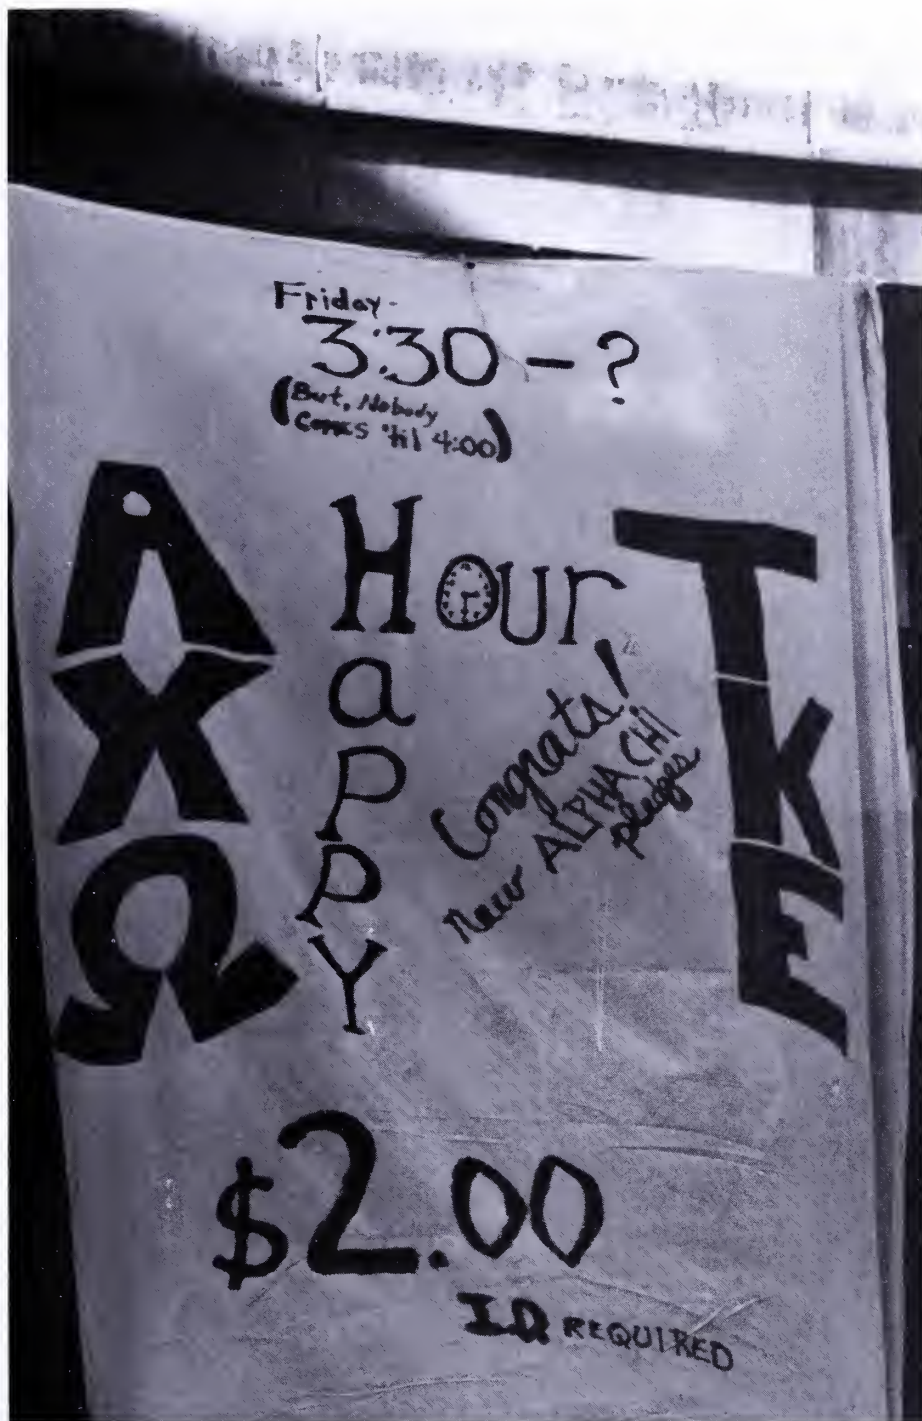 Friday-
3:30 - ?
(But, Nobody
Comes 'til 4:00)
ΑΧΩ
Hour
Happy
TKE
Congrats!
New ALPHA CHI
pledges
$2.00
I.D. REQUIRED